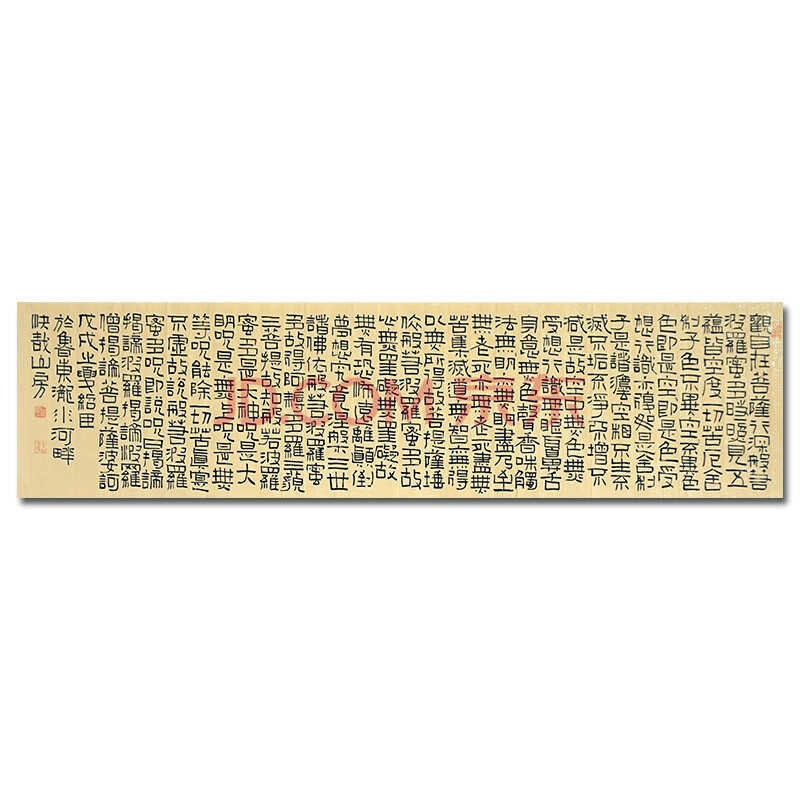 觀自在菩薩行深般若
波羅蜜多時照見五
蘊皆空度一切苦厄舍
利子色不異空空不異色
色即是空空即是色受
想行識亦復如是舍利
子是諸法空相不生不
滅不垢不淨不增不
減是故空中無色無
受想行識無眼耳鼻舌
身意無色聲香味觸
法無明亦無無明盡乃至
無老死亦無老死盡無
苦集滅道無智亦無得
以無所得故菩提薩埵
依般若波羅蜜多故
心無罣礙無罣礙故
無有恐怖遠離顛倒
夢想究竟涅槃三世
諸佛依般若波羅蜜
多故得阿耨多羅三藐
三菩提故知般若波羅
蜜多是大神呪是大
明呪是無上呪是無
等呪能除一切苦真實
不虛故說般若波羅
蜜多呪即說呪曰揭諦
揭諦波羅揭諦波羅
僧揭諦菩提薩婆訶
戊戌之夏紹臣
於魯東瀧水河畔
快哉山房
JD.COM 京东